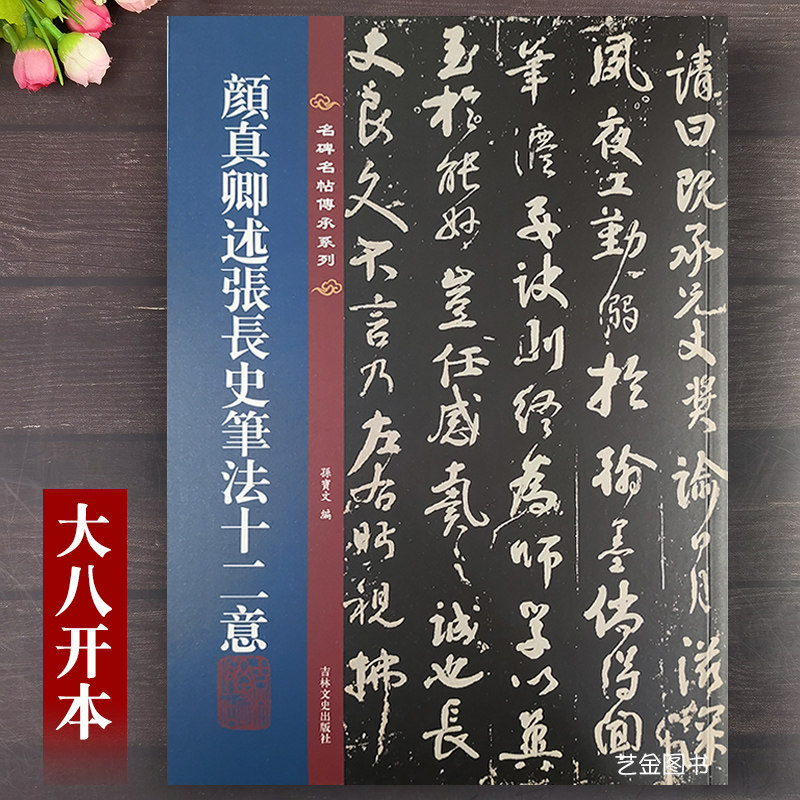 顔真卿述張長史筆法十二意
名碑名帖傳承系列
孫寶文 編
吉林文史出版社
請曰既承兄丈奬諭日月滋深
夙夜工勤溺於翰墨倘得聞
筆法要訣則終為師學以冀
至於能妙豈任感戴之誠也長
史良久不言乃左右眄視拂
大八开本
艺金图书